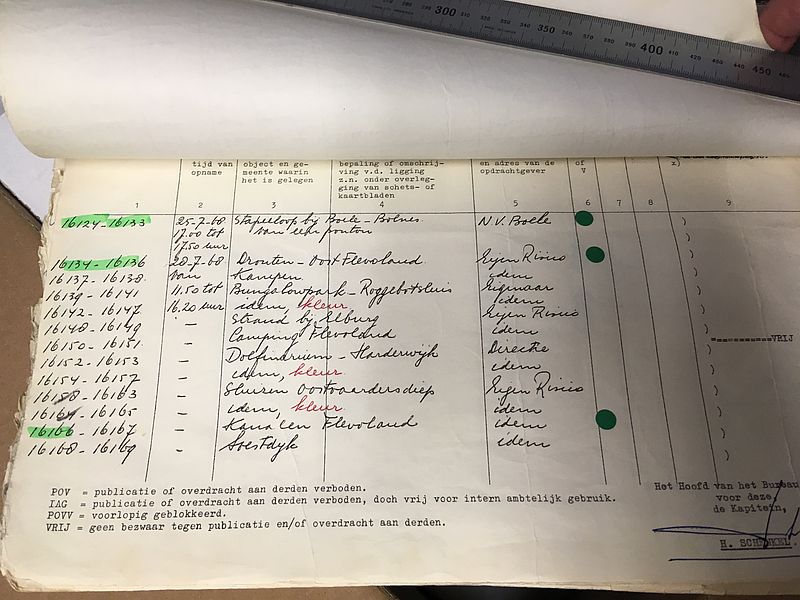 300 350 400 450
tijd van opname
object en ge-
meente waarin
het is gelegen
bepaling of omschrij-
ving v.d. ligging
z.n. onder overleg-
ging van schets- of
kaartbladen
en adres van de
opdrachtgever
of
V
x)
1 2 3 4 5 6 7 8 9
16124-16133 25-7-68 Stapelloop bij Boele-Bolnes. N.V. Boele )
17.00 tot van een ponton
17.50 uur
16134-16136 28-7-68 Dronten-Oost Flevoland. Eigen Risico )
16137-16138. van Kampen. idem )
16139-16141 11.50 tot Bungalowpark-Roggebotsluis Eigenaar )
16142-16147 16.20 uur idem, kleur. idem )
16148-16149 - Strand bij Elburg Eigen Risico )
16150-16151 - Camping Flevoland idem ) ==========VRIJ
16152-16153 - Dolfinarium-Harderwijk Directie )
16154-16157 - idem, kleur. idem )
16158-16163 - Sluizen Oostvaardersdiep Eigen Risico )
16164-16165 - idem, kleur. idem )
16166-16167 - Kanalen Flevoland idem )
16168-16169 - Soestdyk idem )
POV = publicatie of overdracht aan derden verboden.
IAG = publicatie of overdracht aan derden verboden, doch vrij voor intern ambtelijk gebruik.
POVV = voorlopig geblokkeerd.
VRIJ = geen bezwaar tegen publicatie en/of overdracht aan derden.
Het Hoofd van het Bureau
voor deze,
de Kapitein,